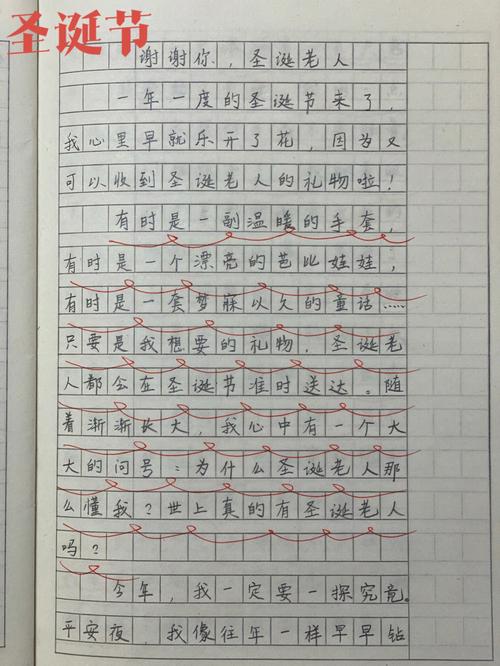 圣诞节
谢谢你，圣诞老人
一年一度的圣诞节来了，
我心里早就乐开了花，因为又
可以收到圣诞老人的礼物啦！
有时是一副温暖的手套，
有时是一个漂亮的芭比娃娃，
有时是一套梦寐以久的童话……
只要是我想要的礼物，圣诞老
人都会在圣诞节准时送达。随
着渐渐长大，我心中有一个大
大的问号：为什么圣诞老人那
么懂我？世上真的有圣诞老人
吗？
今年，我一定要一探究竟。
平安夜，我像往年一样早早钻